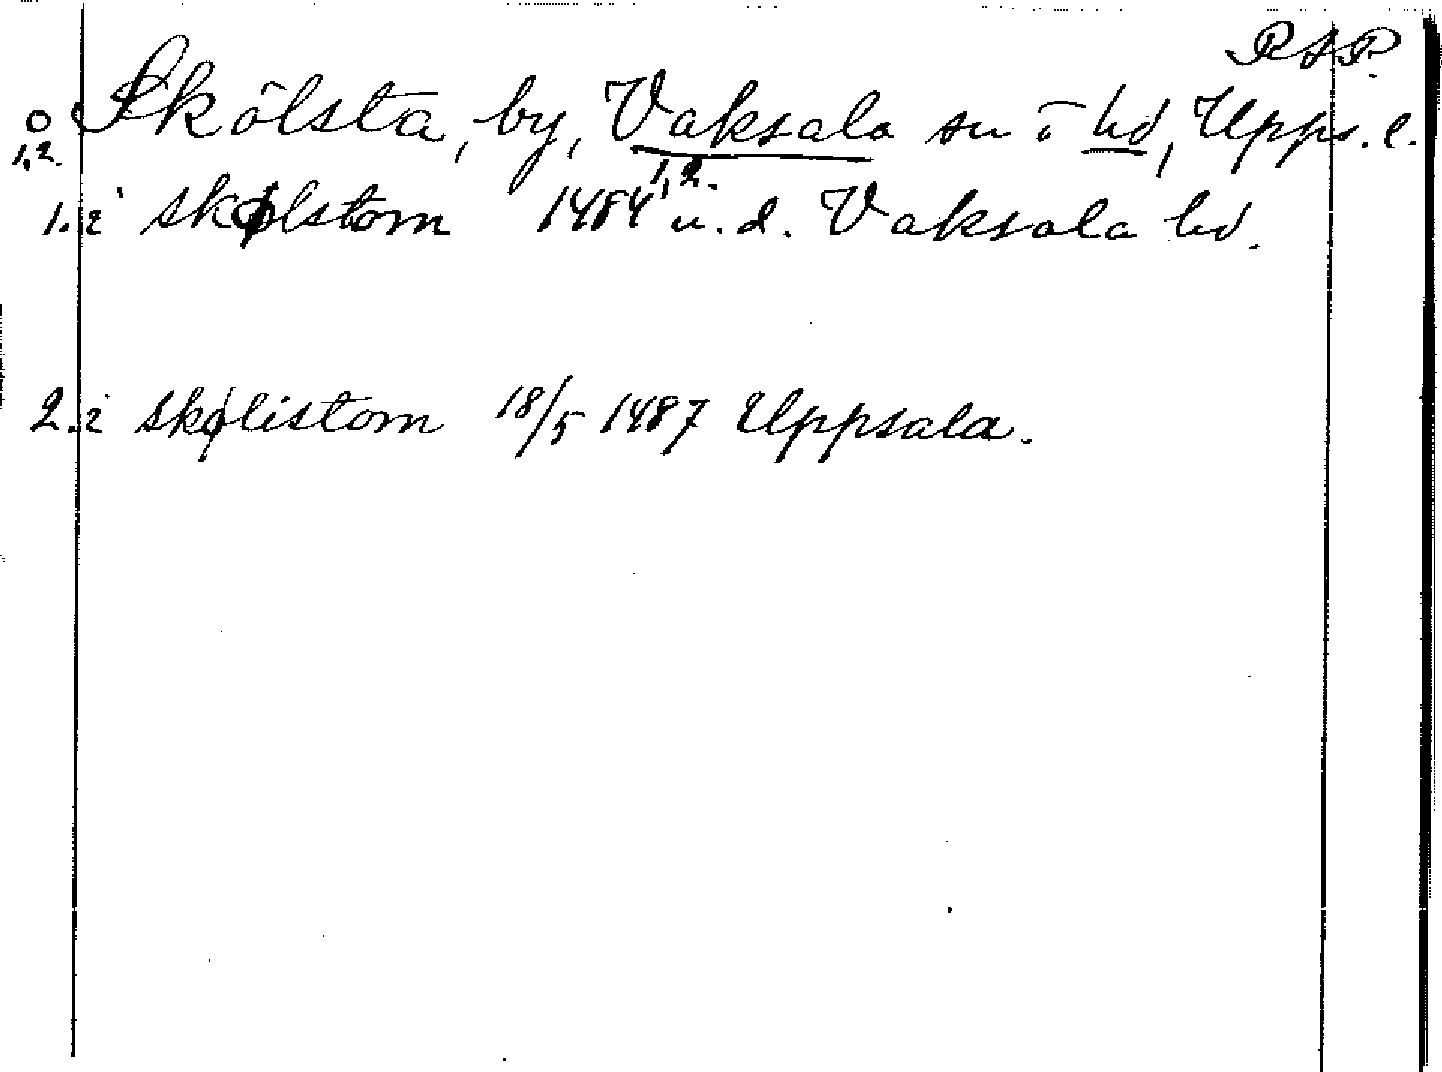 RAP.
o Skölsta, by, Vaksala sn o hd, Upps. l.
1,2. 1,2.
1. i skølstom 1484 u. d. Vaksala hd.
2. i skølistom 18/5 1487 Uppsala.